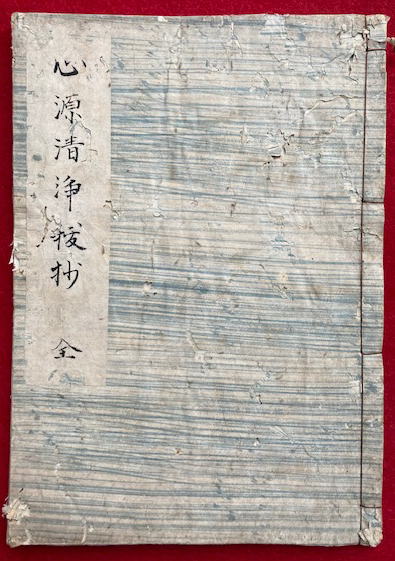 心源清浄祓抄 全